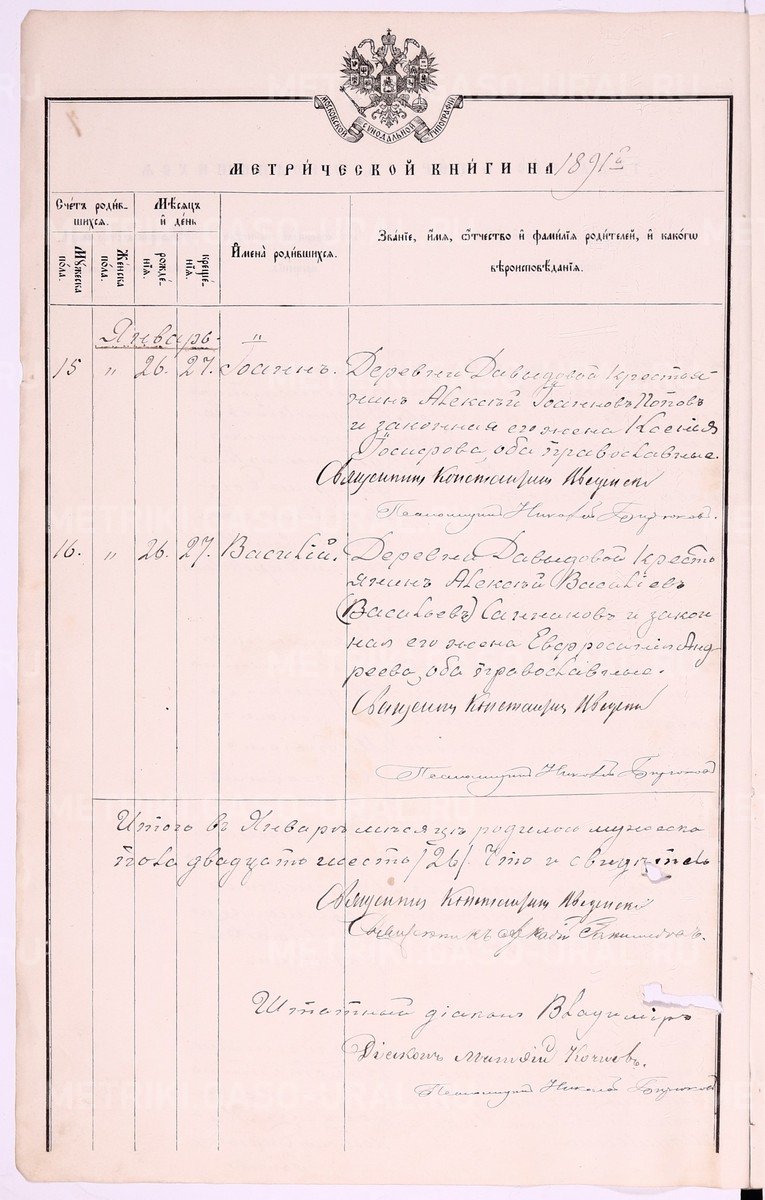 МОСКОВСКОЙ СѴНОДАЛЬНОЙ ТИПОГРАФІИ
МЕТРИ́ЧЕСКОЙ КНИ́ГИ НА 1891 г.
Сче́тъ роди́вшихся.
Мѣ́сяцъ и҆ де́нь
И҆мена̀ роди́вшихся.
Зва́нїе, и҆́мя, ѻ҆́тчество и҆ фами́лїѧ роди́телей, и҆ како́гѡ вѣроисповѣ́данїѧ.
Мꙋ́жеска по́ла.
Же́нска по́ла.
рожде́нїѧ.
креще́нїѧ.
Январь. "
15 " 26. 27. Іоаннъ. Деревни Давыдовой крестья-
нинъ Алексѣй Іоанновъ Поповъ
и законная его жена Ксенія
Іосифова, оба православные.
Священникъ Константинъ
Псаломщикъ Николай Бирюковъ.
16. " 26. 27. Василій. Деревни Давыдовой кресто
янинъ Алексѣй Василіевъ
(Васильевъ) и закон
ная его жена Евфросинія Анд
реева, оба православные.
Священникъ Константинъ
Псаломщикъ Николай Бирюковъ
Итого въ Январѣ мѣсяцѣ родилось мужеска
пола двадцать шесть /26/. Что и свидѣтель
Священникъ Константинъ
Священникъ
Штатный діаконъ Владиміръ
Діаконъ
Псаломщикъ Николай Бирюковъ